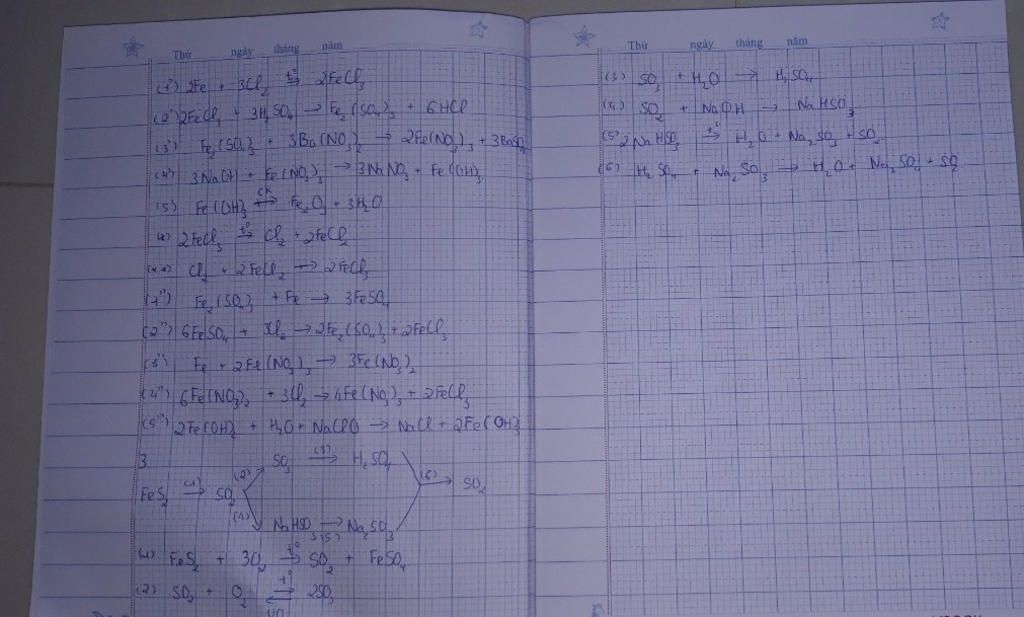 Thứ ngày tháng năm
(1') 2Fe + 3Cl₂ →(t°) 2FeCl₃
(2') 2FeCl₃ + 3H₂SO₄ → Fe₂(SO₄)₃ + 6HCl
(3') Fe₂(SO₄)₃ + 3Ba(NO₃)₂ → 2Fe(NO₃)₃ + 3BaSO₄
(4') 3NaOH + Fe(NO₃)₃ → 3NaNO₃ + Fe(OH)₃
(5) Fe(OH)₃ → Fe₂O₃ + 3H₂O
2FeCl₃ →(t°) Cl₂ + 2FeCl₂
Cl₂ + 2FeCl₂ → 2FeCl₃
(1'') Fe₂(SO₄)₃ + Fe → 3FeSO₄
(2'') 6FeSO₄ + 3Cl₂ → 2Fe₂(SO₄)₃ + 2FeCl₃
(3'') Fe + 2Fe(NO₃)₃ → 3Fe(NO₃)₂
(4'') 6Fe(NO₃)₂ + 3Cl₂ → 4Fe(NO₃)₃ + 2FeCl₃
(5'') 2Fe(OH)₂ + H₂O + NaClO → NaCl + 2Fe(OH)₃
3
SO₃ →(3) H₂SO₄
FeS₂ →(1) SO₂ (2) (4) (6) → SO₂
NaHSO₃ →(5) Na₂SO₃
(1) FeS₂ + 3O₂ →(t°) SO₂ + FeSO₄
(2) SO₂ + O₂ ⇌(t°) 2SO₃
Thứ ngày tháng năm
(3) SO₃ + H₂O → H₂SO₄
(4) SO₂ + NaOH → NaHSO₃
(5) 2NaHSO₃ →(t°) H₂O + Na₂SO₃ + SO₂
(6) H₂SO₄ + Na₂SO₃ → H₂O + Na₂SO₄ + SO₂